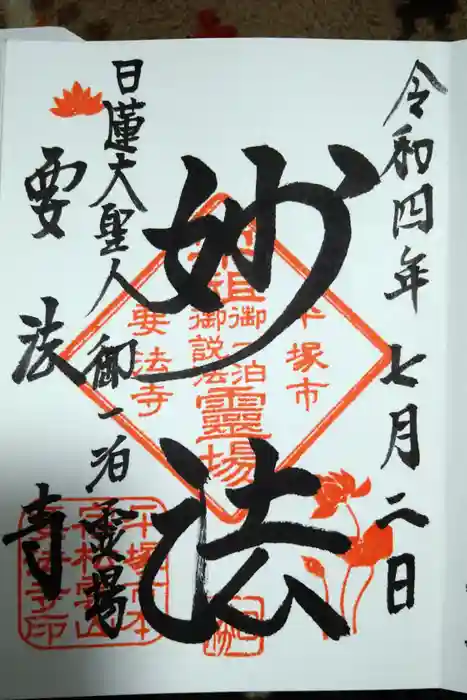 令和四年七月二日
妙法
日蓮大聖人御一泊霊場
要法寺
平塚市
宗祖
御一泊
御説法
靈場
要法寺